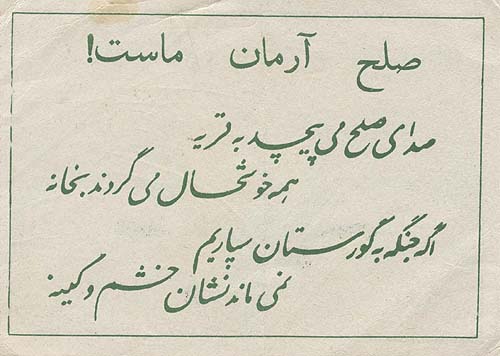 صلح آرمان ماست!
صدای صلح می پیچد به قریه
همه خوشحال می گردند بخانه
اگر جنگ به گورستان سپاریم
نمی ماند نشان خشم و کینه